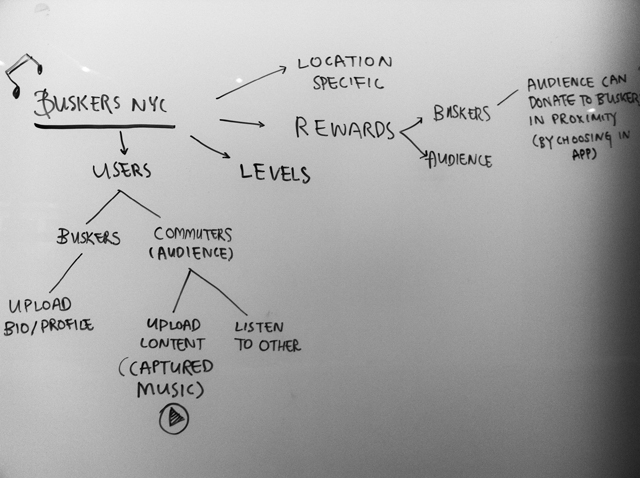 BUSKERS NYC
LOCATION
SPECIFIC
REWARDS
BUSKERS
AUDIENCE
AUDIENCE CAN
DONATE TO BUSKER
IN PROXIMITY
(BY CHOOSING IN
APP)
LEVELS
USERS
BUSKERS
UPLOAD
BIO/PROFILE
COMMUTERS
(AUDIENCE)
UPLOAD
CONTENT
(CAPTURED
MUSIC)
LISTEN
TO OTHER